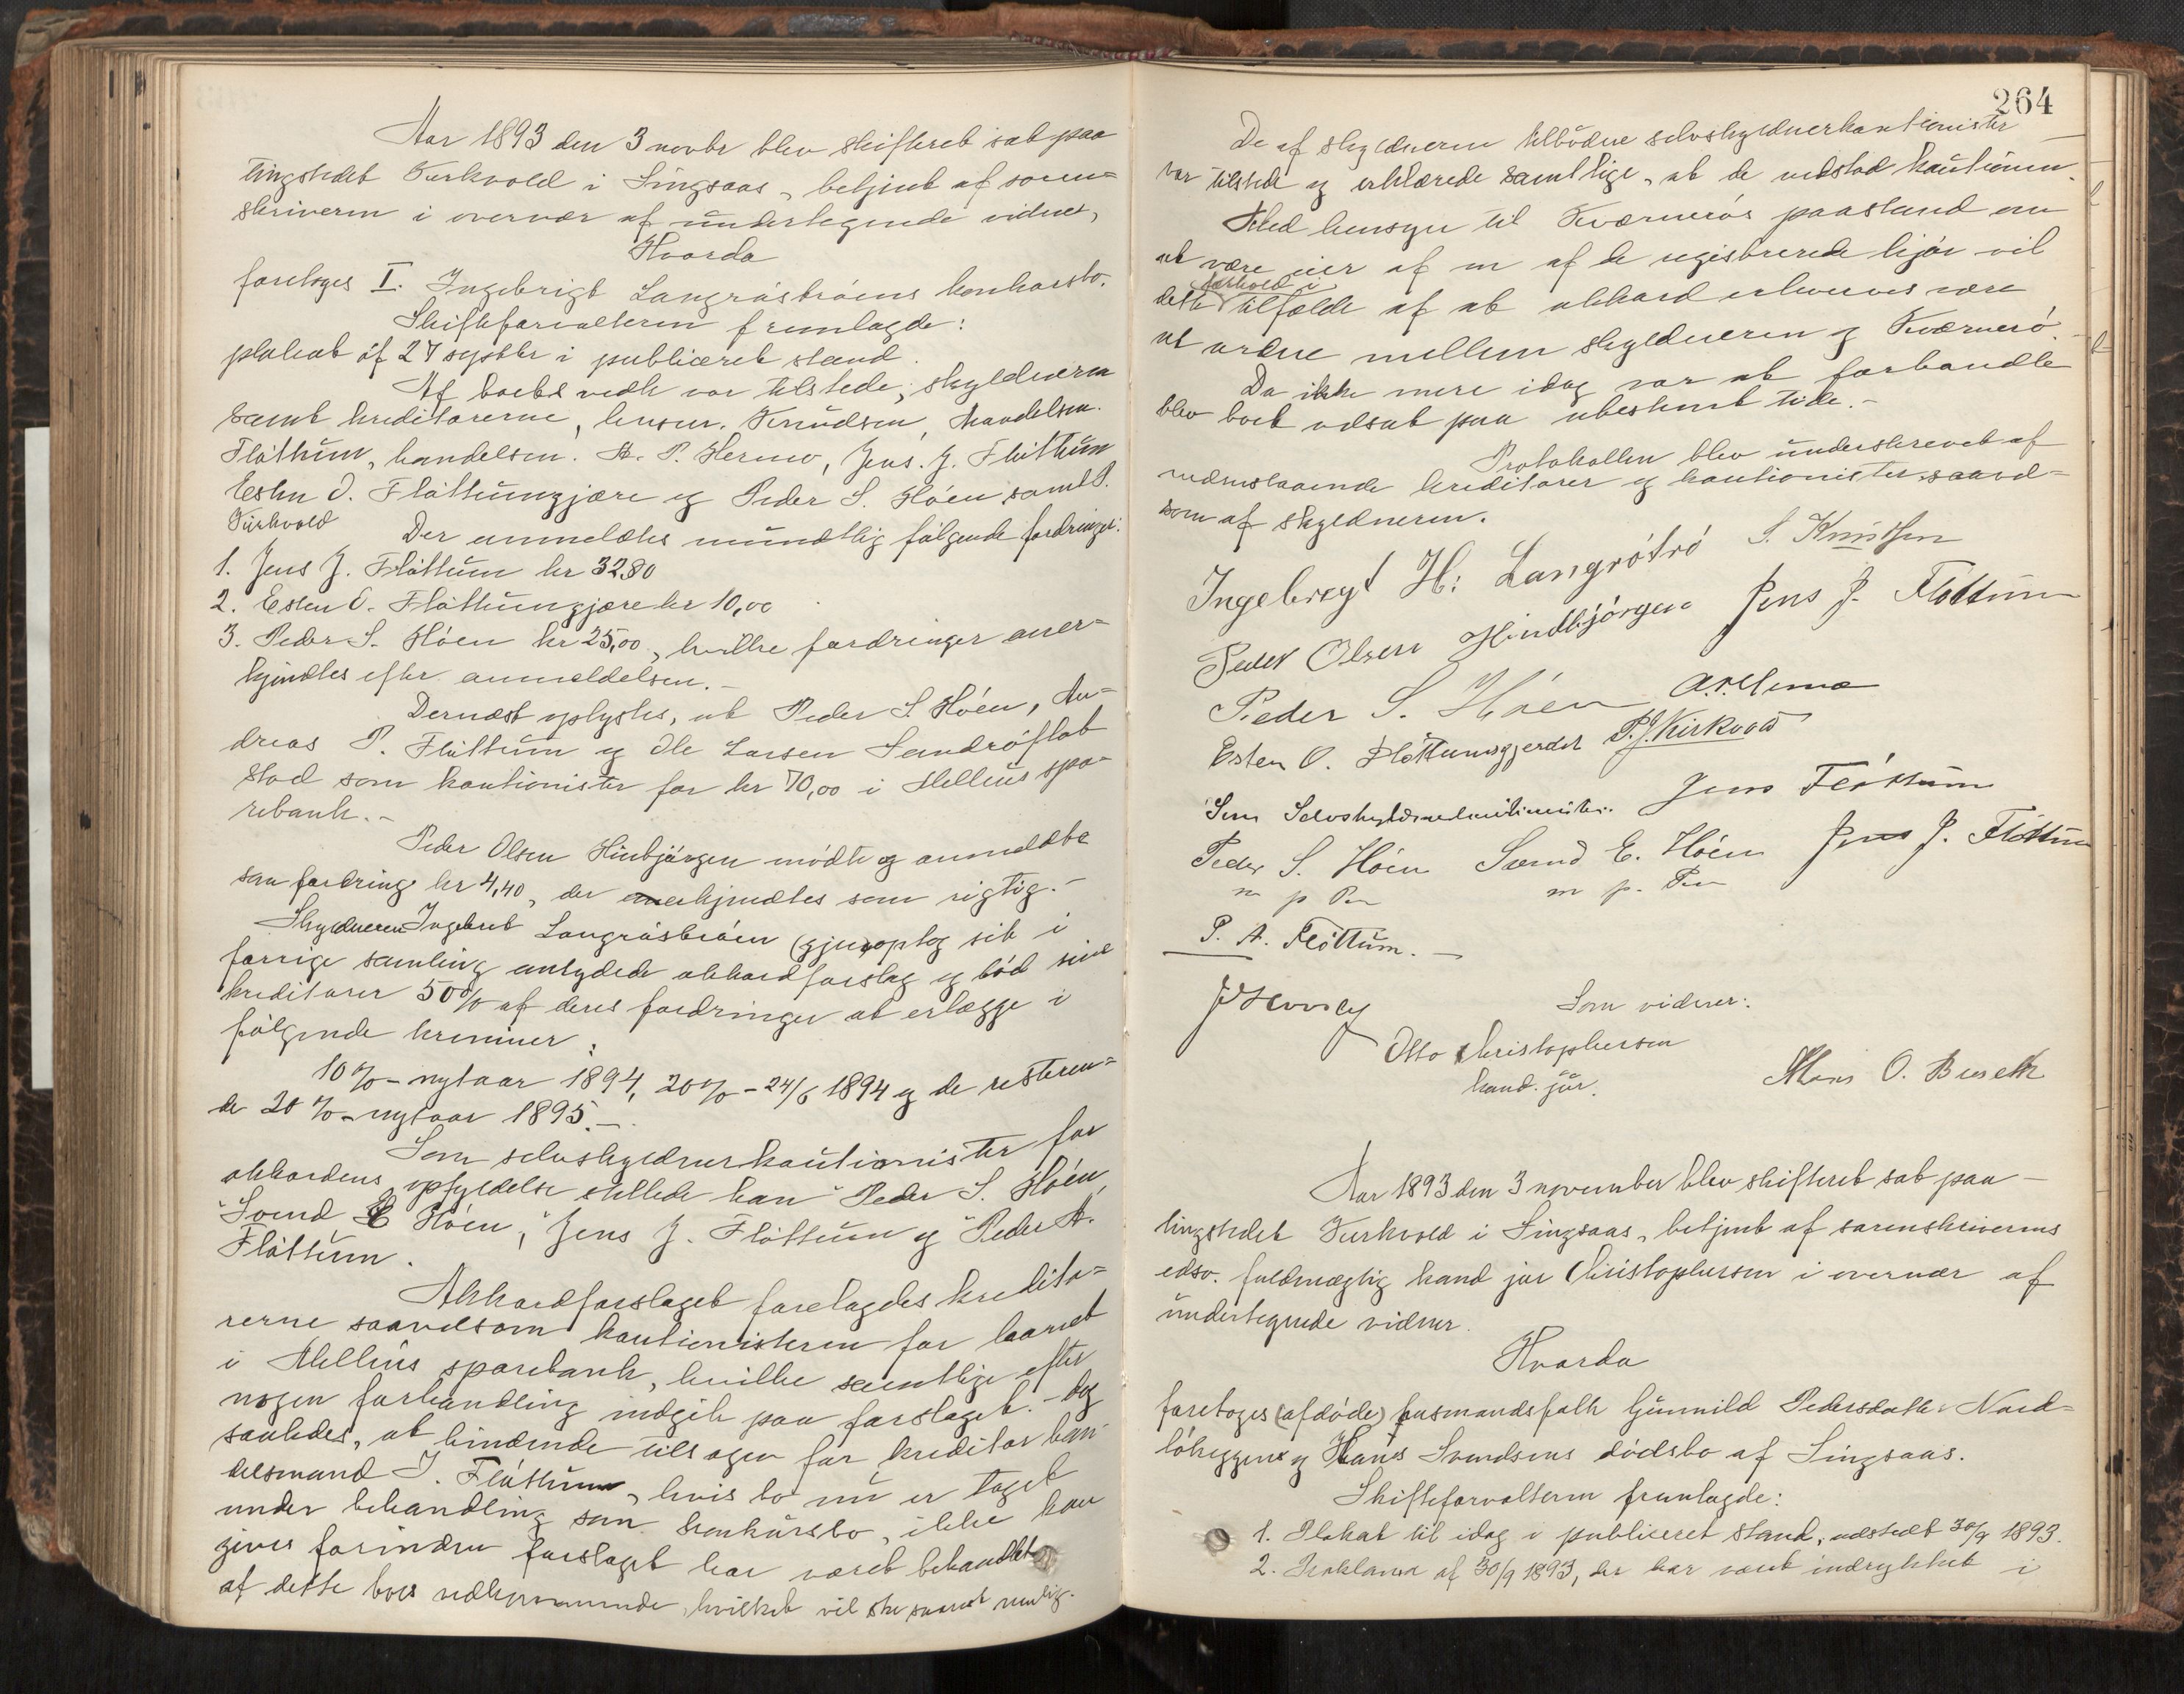 Aar 1893 den 3 novbr blev skifteret sat paa
tingstedet Kirkvold i Singsaas, betjent af soren=
skriveren i overvær af undertegnede vidner,
Hvorda
foretoges I. Ingebrigt Langråstrøens konkursbo.
Skifteforvalteren fremlagde:
plakat af 27 septbr i publiceret stand.
Af boets vedk var tilstede, skyldneren
samt kreditorerne, Knudsen, Handelsm.
Fløttum, handelsm. A. P. Hermo, Jens. J. Fløttum
Esten O. Fløttumgjære og Peder S. Høen samt P.
Kirkvold Der anmeldtes mundtlig følgende fordringer:
1. Jens J. Fløttum kr 32,80
2. Esten O. Fløttumgjære kr 10,00
3. Peder S. Høen kr 25,00, hvilke fordringer aner=
kjendtes efter anmeldelsen.-
Dernæst oplystes, at Peder S. Høen, An=
dreas P. Fløttum og Ole Larsen Sandrøflat
stod som kautionister for kr 70,00 i Melhus spa=
rebank.-
Peder Olsen Hinbjørgen mødte og anmeldte
som fordring kr 4,40, der anerkjendtes som rigtig.-
Skyldneren Ingebret Langråstrøen (gjen)optog sit i
forrige samling antydede akkordforslag og bød sine
kreditorer 50% af deres fordringer at erlægge i
følgende terminer:
10%-nytaar 1894, 20%-24/6 1894 og de resteren=
de 20%-nytaar 1895.-
Som selvskyldnerkautionister for
akkordens opfyldelse stillede han "Peder S. Høen,
"Svend E Høen, "Jens J. Fløttum og "Peder A.
Fløttum.
Akkordforslaget forelagdes kredito=
rerne saavelsom kautionisterne for laanet
i Melhus sparebank, hvilke samtlige efter
nogen forhandling indgik paa forslaget.- dog
saaledes, at bindende tilsagn for kreditor han=
delsmand J. Fløttum, hvis bo nu er taget
under behandling som konkursbo, ikke kan
gives forinden forslaget har været behandlet
af dette boes vedkommende, hvilket vil ske snarest mulig.
264
De af skyldneren tilbudne selvskyldnerkautionister
var tilstede og erklærede samtlige, at de vedstod kautionen.
Med hensyn til Kværnerøs paastand om
at være eier af en af de registrerede kjør vil
forhold i
dette tilfælde af at akkord erhverves være
at ordne mellem skyldneren og Kværnerø.
Da ikke mere idag var at forhandle
blev boet udsat paa ubestemt tide.-
Protokollen blev underskrevet af
nedenstaaende kreditorer og kautionister saavel=
som af skyldneren.
Ingebregt H: Langrøtrø S. Knudsen
Peder Olsen Hindbjørgen Jens J. Fløttum
Peder S. Høen
Esten O. Fløttumsgjerdet P. J. Kirkvold
Som Selvskyldnerkautionister. Jens Fløttum
Peder S. Høen Svend E. Høen Jens J. Fløttum
m p Pen m p. Pen
P. A. Fløttum.-
Som vidner:
Otto Christophersen
kand. jur. Mons O. Bureth
Aar 1893 den 3 november blev skifteret sat paa
tingstedet Kirkvold i Singsaas, betjent af sorenskriverens
edsv. fuldmægtig kand jur Christophersen i overvær af
undertegnede vidner.
Hvorda
foretoges (afdøde) husmandsfolk Gunnild Pedersdatter Nord=
løkeggen og Hans Svendsens dødsbo af Singsaas.
Skifteforvalteren fremlagde:
1. Plakat til idag i publiceret stand, udstedt 30/9 1893.
2. Proklama af 30/9 1893, der har været indrykket i